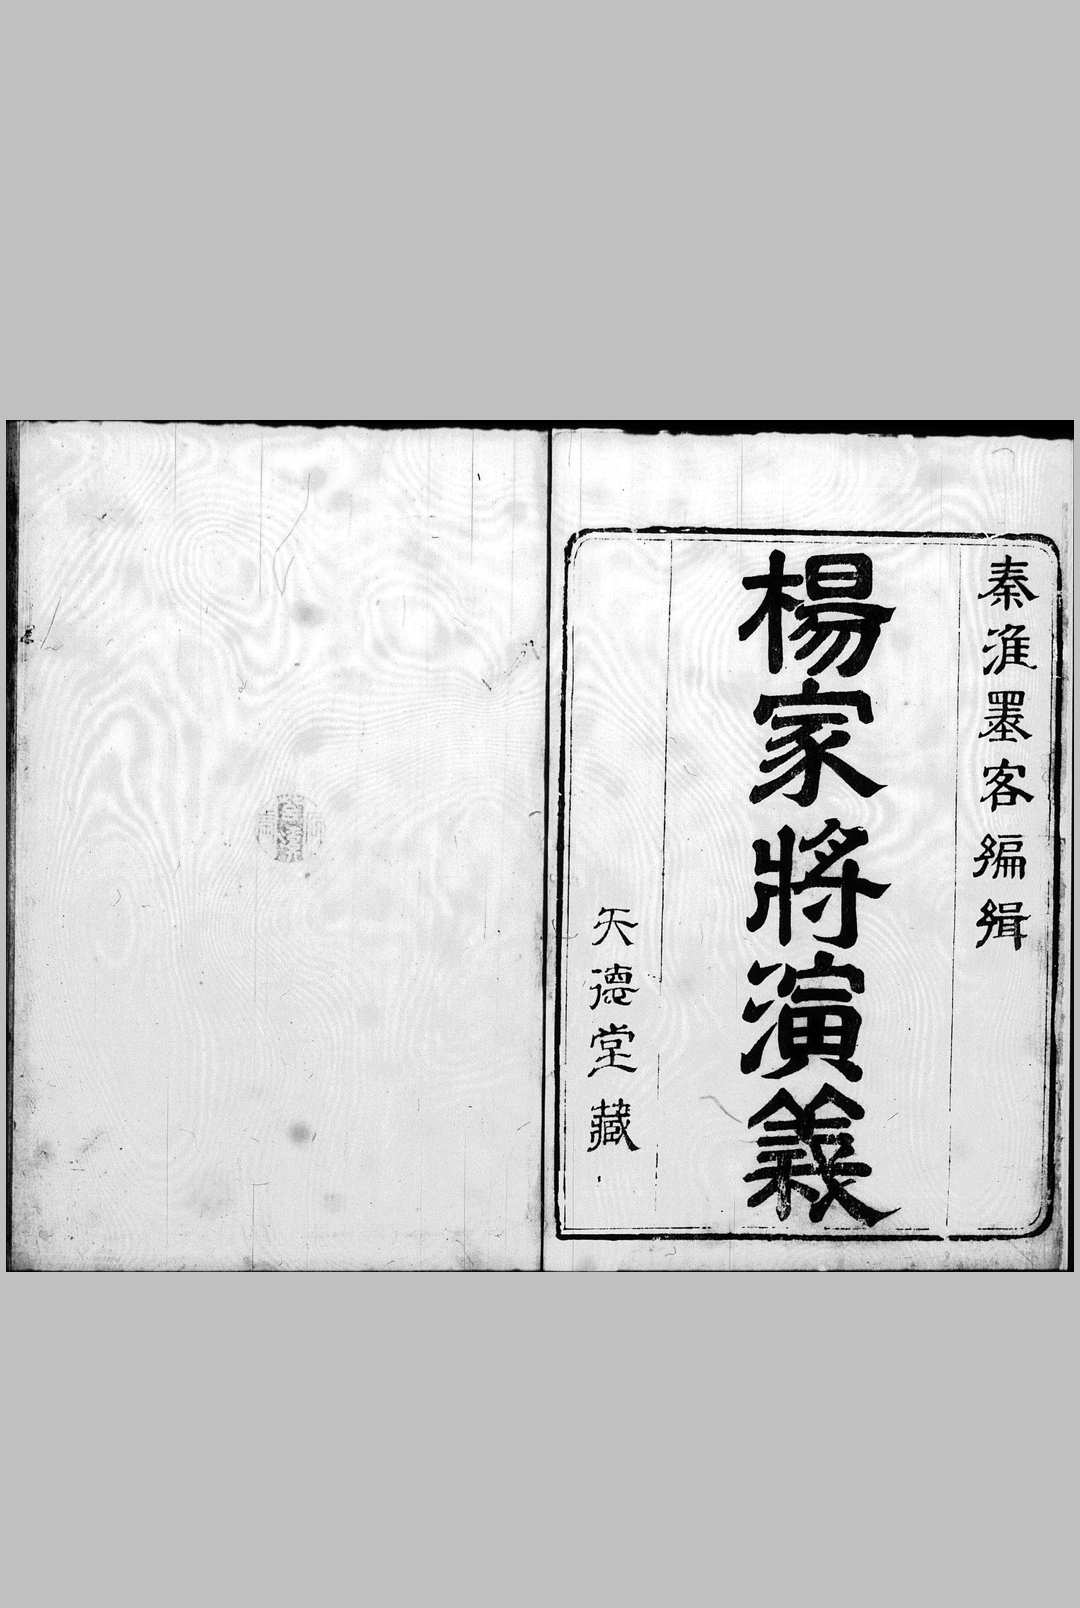 秦淮墨客編輯
楊家將演義
天德堂藏